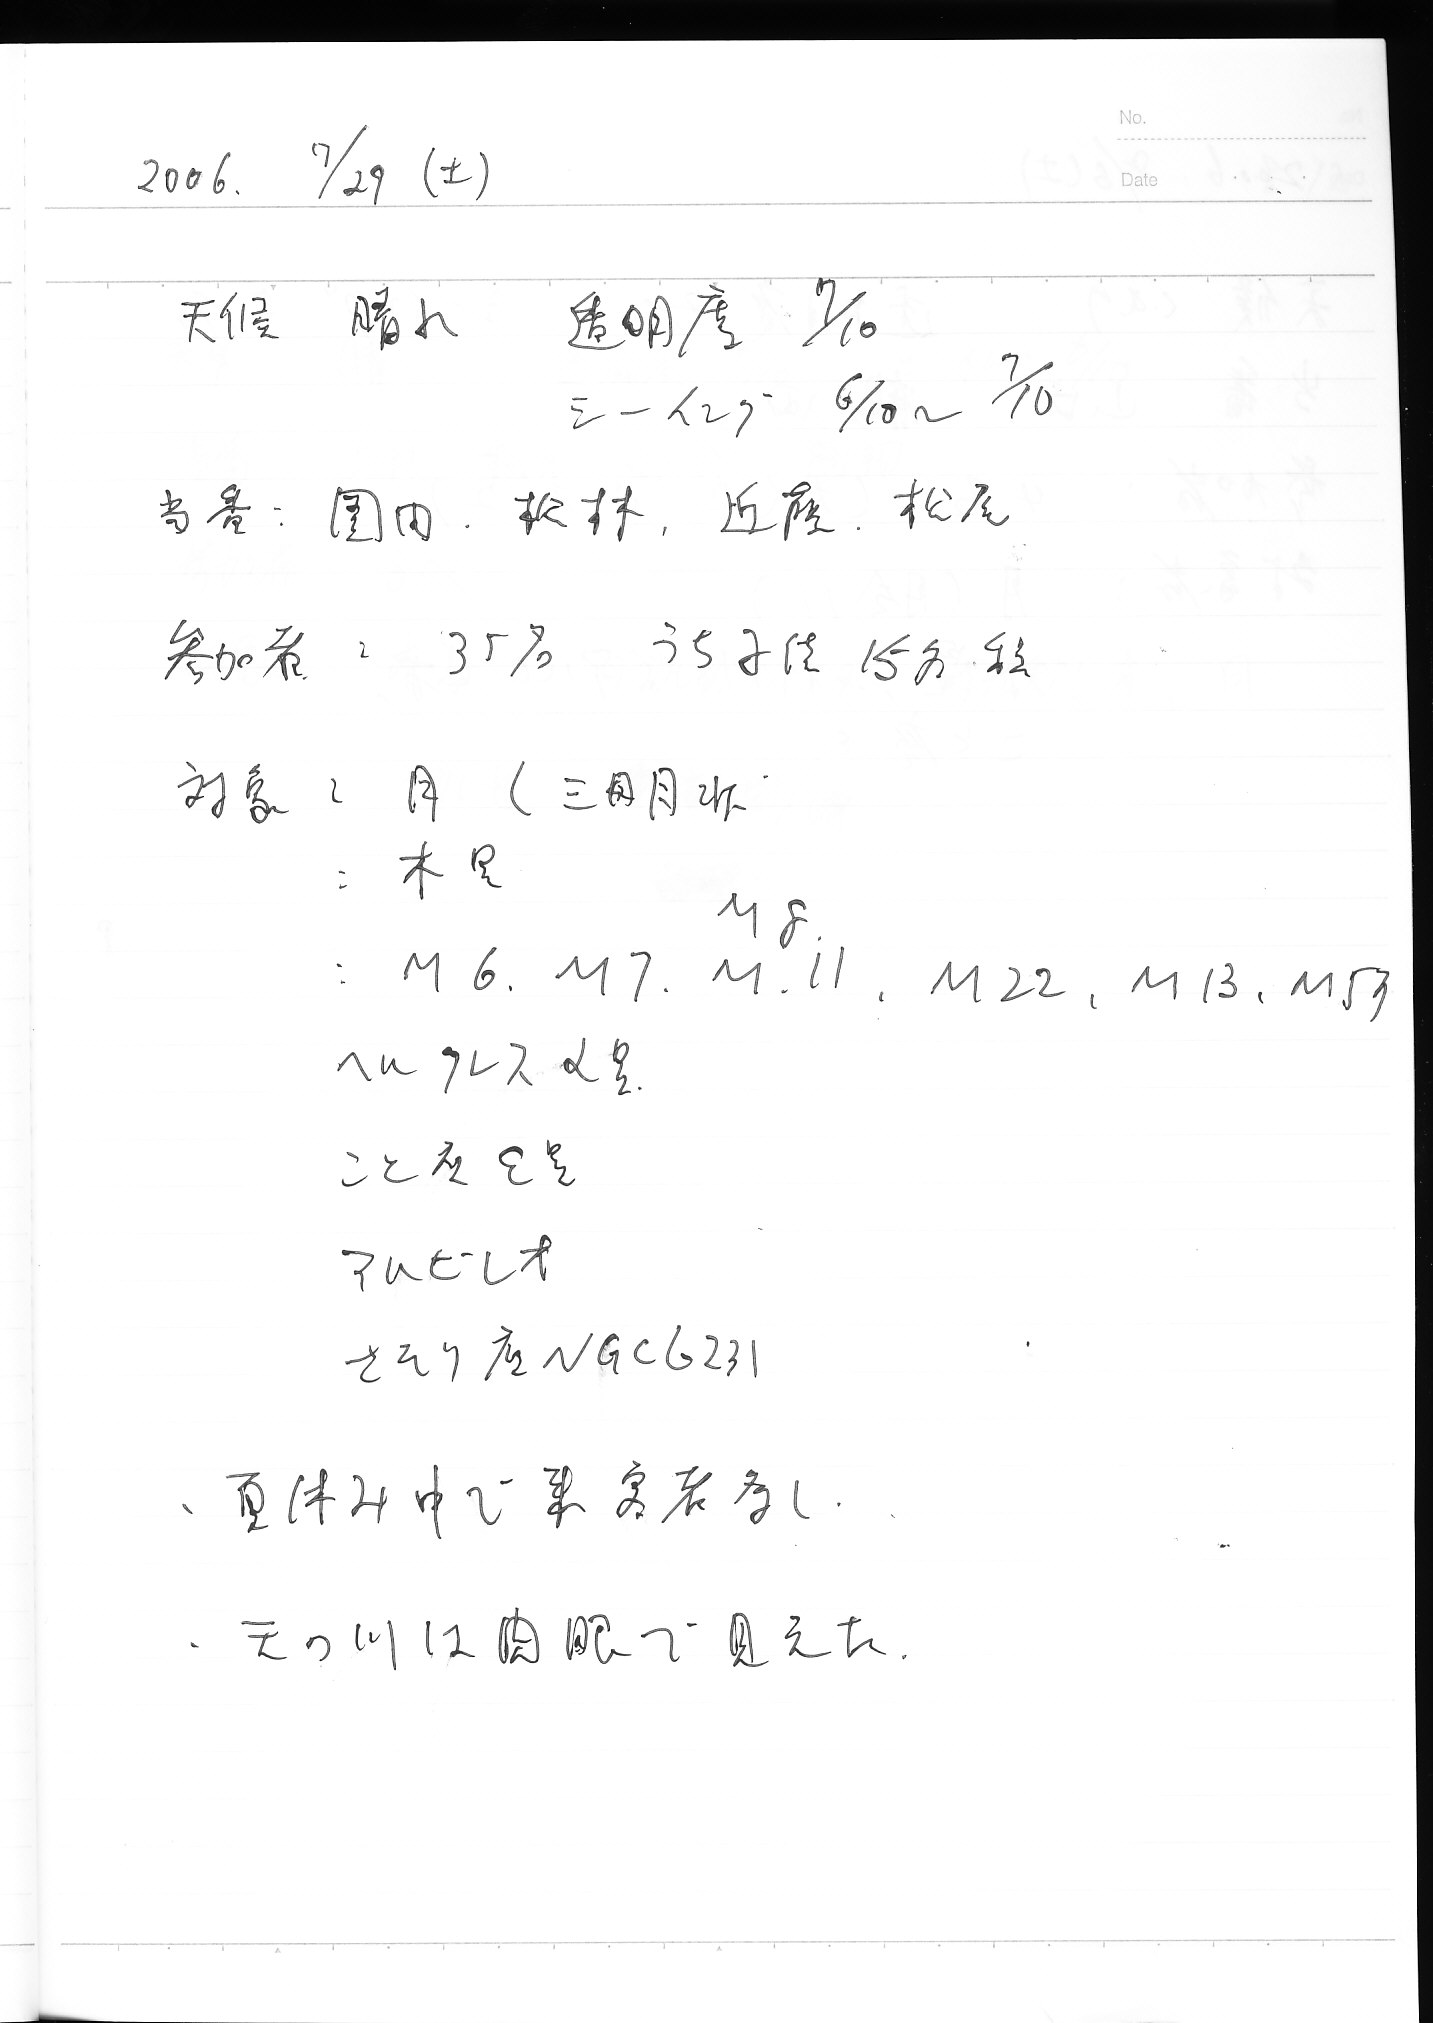 No.
Date
2006. 7/29 (土)
天候 晴れ 透明度 7/10
シーイング 6/10〜 7/10
当番: 園田. 松林, 近藤. 松尾
参加者: 35名 うち子供 15名 程
対象: 月 (三日月状
: 木星
M8.
: M6. M7. M.11, M22, M13, M57
ヘルクレスα星.
こと座ε星
アルビレオ
さそり座NGC6231
、夏休み中で来客者多し.
・天の川は肉眼で見えた.